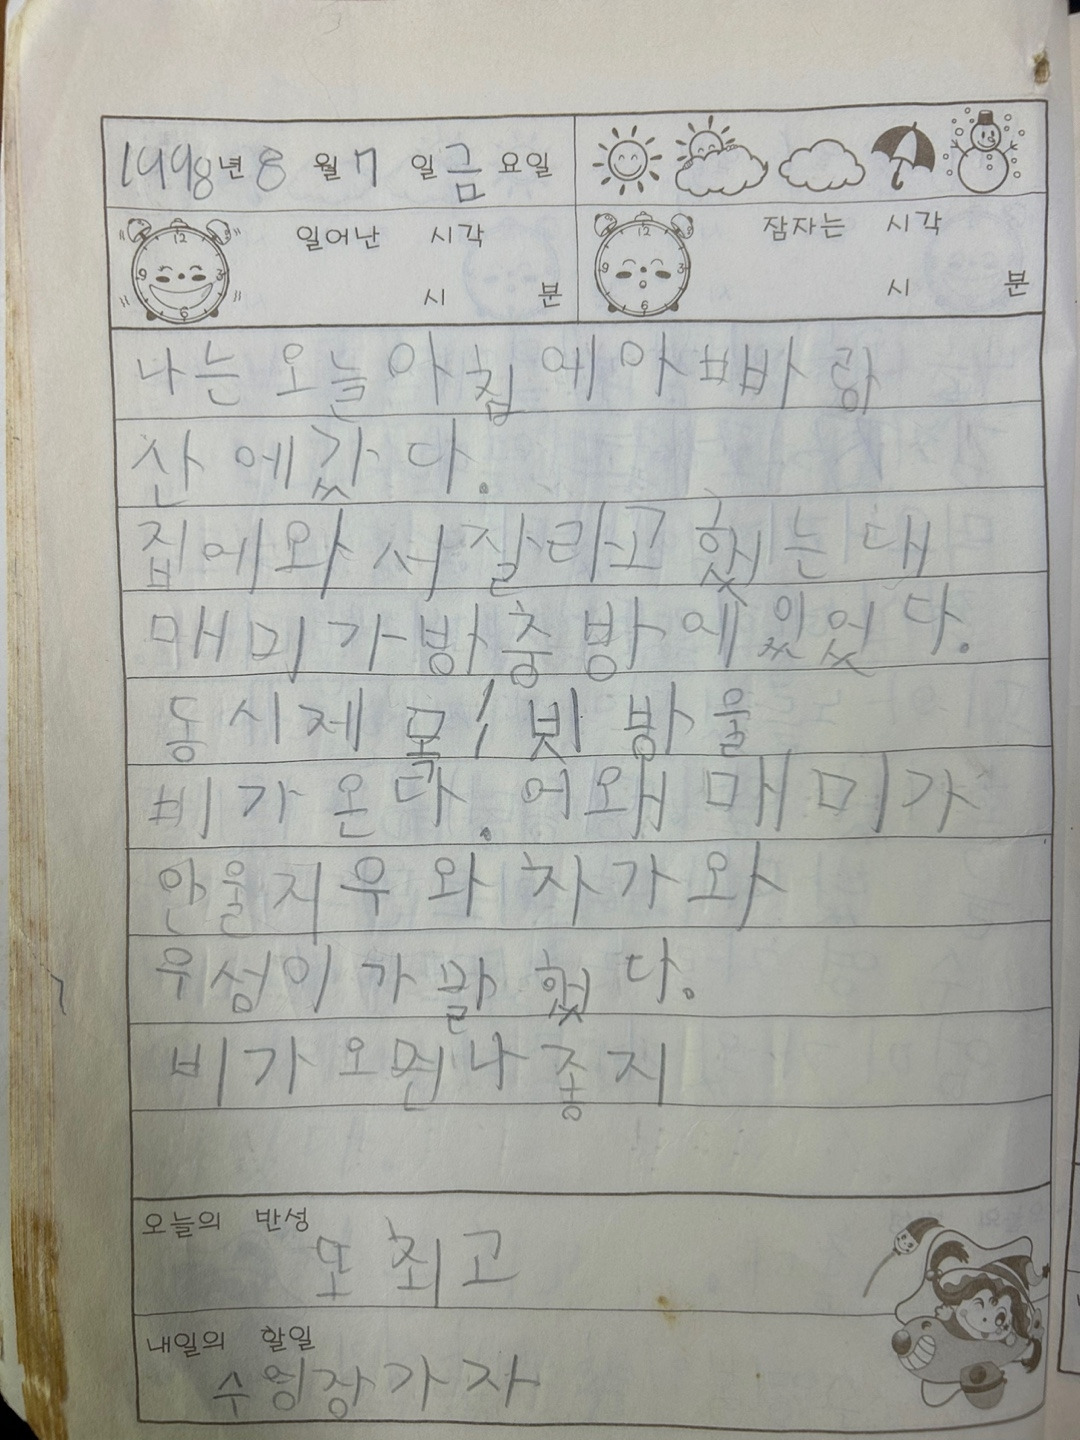 1998년 8 월 7 일 금 요일
일어난 시각
시 분
잠자는 시각
시 분
나는 오늘 아침에 아빠랑
산에 갔다.
집에 와서 잘라고 했는대
매미가 방충방에 있었다.
동시제목! 빗방울
비가 온다. 어왜 매미가
안울지 우와 차가와
우성이가 말했다.
비가 오면 나 좋지
오늘의 반성
또 최고
내일의 할일
수영장가자